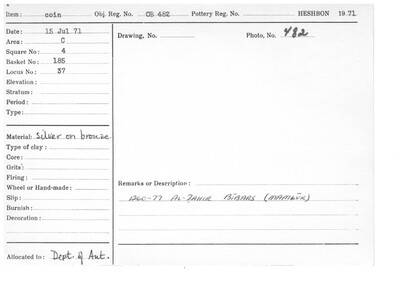 Item: coin Obj. Reg. No. OB 482 Pottery Reg. No. HESHBON 19 71
Date: 15 Jul 71 Drawing, No. Photo, No. 482
Area: C
Square No: 4
Basket No: 185
Locus No: 37
Elevation:
Stratum:
Period:
Type:
Material: Silver on bronze
Type of clay:
Core:
Grits:
Firing:
Wheel or Hand-made: Remarks or Description:
Slip: 1260-77 AL-ZAHIR BIBARS (MAMLŪK)
Burnish:
Decoration:
Allocated to: Dept. of Ant.